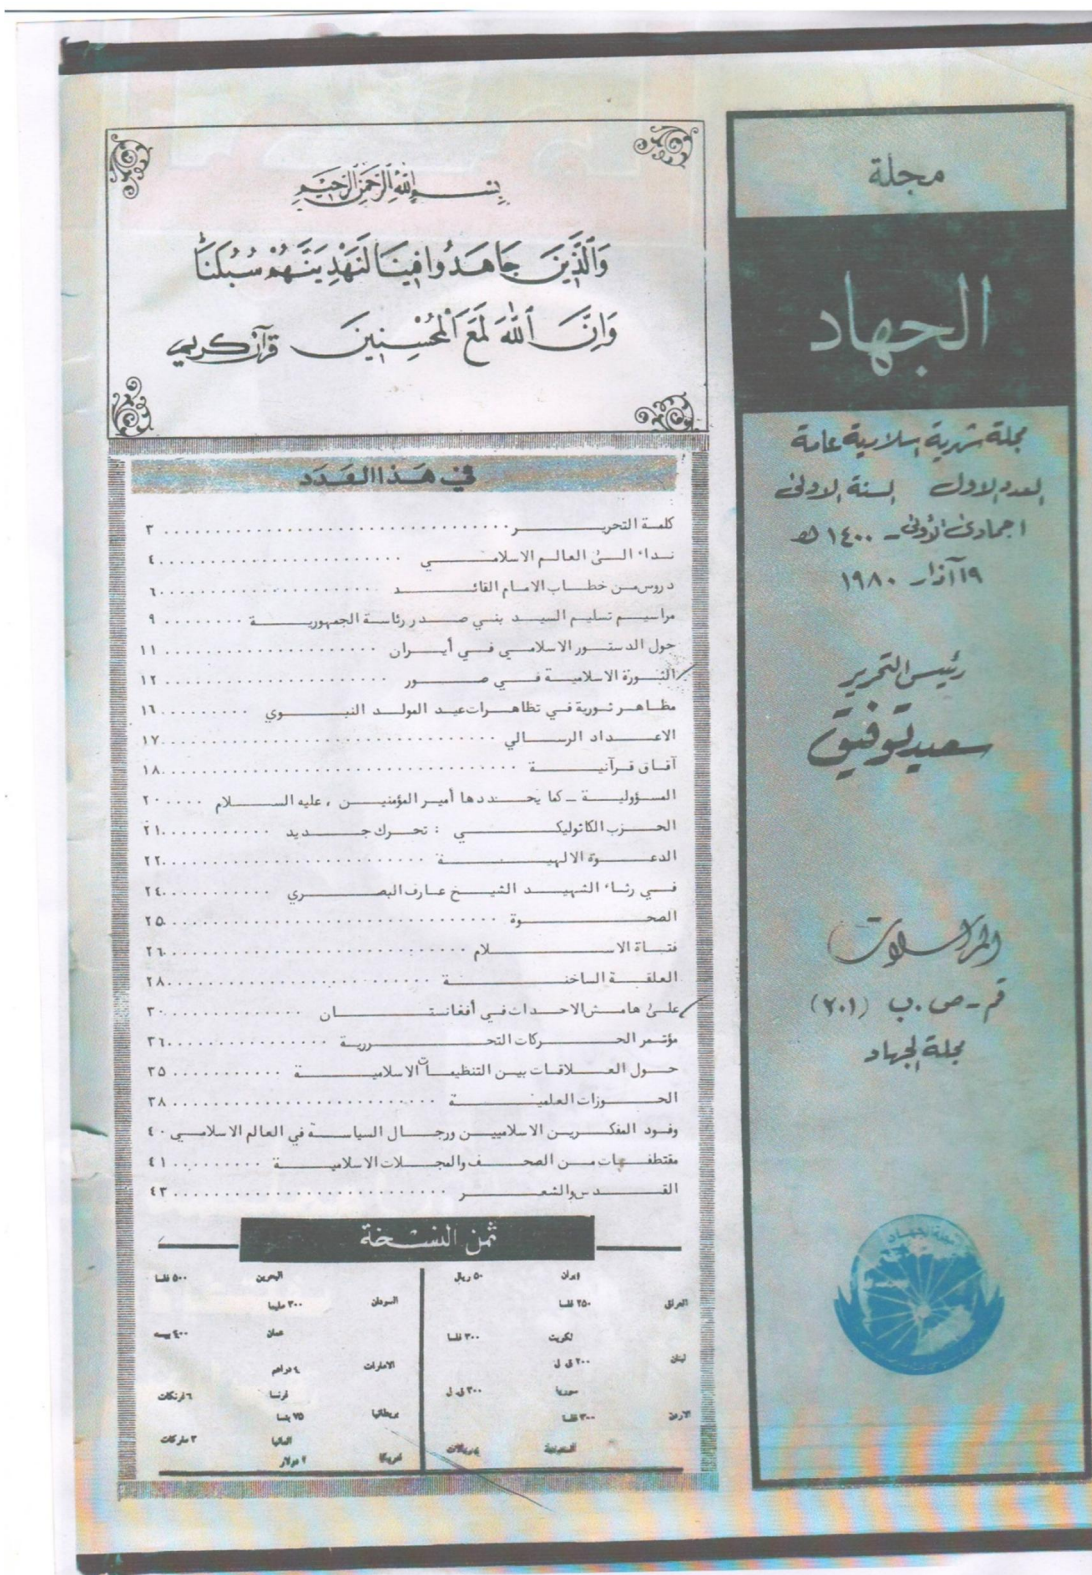 مجلة
الجهاد
مجلة شهرية إسلامية عامة
العدد الاول السنة الاولى
١ جمادى الأولى - ١٤٠٠ هـ
١٩ آذار ١٩٨٠
رئيس التحرير
سعيد توفيق
المراسلات
قم - ص . ب (٢٠١)
مجلة الجهاد
مجلة الجهاد
بِسْمِ اللهِ الرَّحْمٰنِ الرَّحِيْمِ
وَالَّذِينَ جَاهَدُوا فِينَا لَنَهْدِيَنَّهُمْ سُبُلَنَا
وَإِنَّ اللّٰهَ لَمَعَ الْمُحْسِنِينَ قرآن كريم
في هذا العدد
كلمة التحرير ٣
نداء الى العالم الاسلامي ٤
دروس من خطاب الامام القائد ٦
مراسيم تسليم السيد بني صدر رئاسة الجمهورية ٩
حول الدستور الاسلامي في أيران ١١
الثورة الاسلامية في صور ١٢
مظاهر ثورية في تظاهرات عيد المولد النبوي ١٦
الاعداد الرسالي ١٧
آفاق قرآنية ١٨
المسؤولية - كما يحددها أمير المؤمنين ، عليه السلام ٢٠
الحزب الكاثوليكي : تحرك جديد ٢١
الدعوة الالهية ٢٢
في رثاء الشهيد الشيخ عارف البصري ٢٤
الصحوة ٢٥
فتاة الاسلام ٢٦
العلقية الساخنة ٢٨
على هامش الاحداث في أفغانستان ٣٠
مؤتمر الحركات التحررية ٣٦
حول العلاقات بين التنظيمات الاسلامية ٣٥
الحوزات العلمية ٣٨
وفود المفكرين الاسلاميين ورجال السياسة في العالم الاسلامي ٤٠
مقتطفات من الصحف والمجلات الاسلامية ٤١
القدس والشعر ٤٣
ثمن النسخة
ايران ٥٠ ريال
العراق ٢٥٠ فلسا
لكويت ٣٠٠ فلسا
لبنان ٢٠٠ ق ل
سوريا ٣٠٠ ق.ل
الاردن ٣٠٠ فلسا
السعودية ريالات
البحرين ٥٠٠ فلسا
السودان ٣٠٠ مليما
عمان ٤٠٠ بيسه
الامارات ٤ دراهم
فرنسا ٦ فرنكات
بريطانيا ٧٥ بنسا
المانيا ٣ ماركات
امريكا ٢ دولار